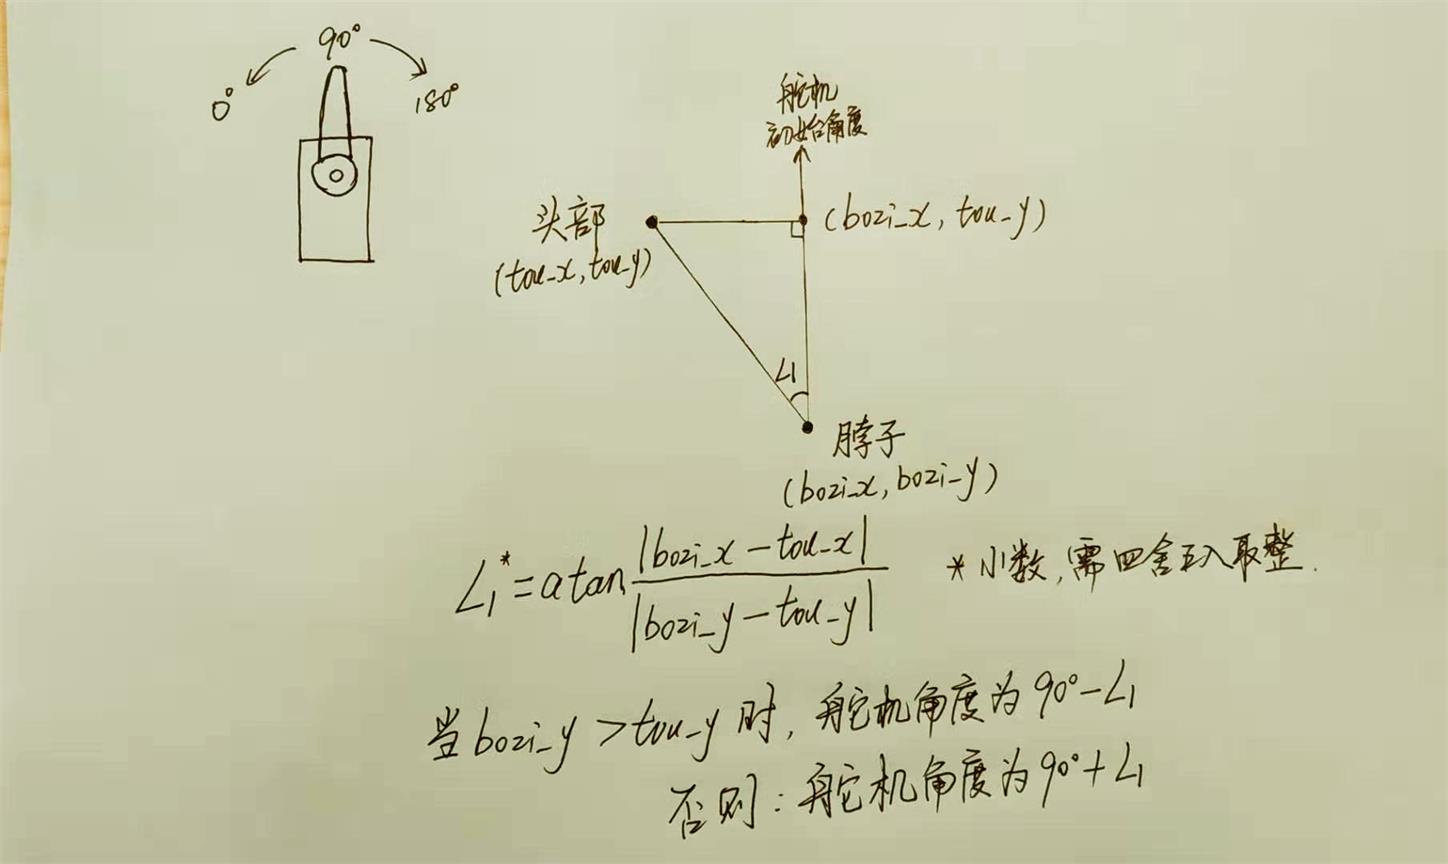 90°
0°
180°
舵机
初始角度
头部
(tou_x, tou_y)
(bozi_x, tou_y)
∠1
脖子
(bozi_x, bozi_y)
∠1* = atan |bozi_x - tou_x| / |bozi_y - tou_y|
* 小数, 需四舍五入取整.
当 bozi_y > tou_y 时, 舵机角度为 90° - ∠1
否则: 舵机角度为 90° + ∠1